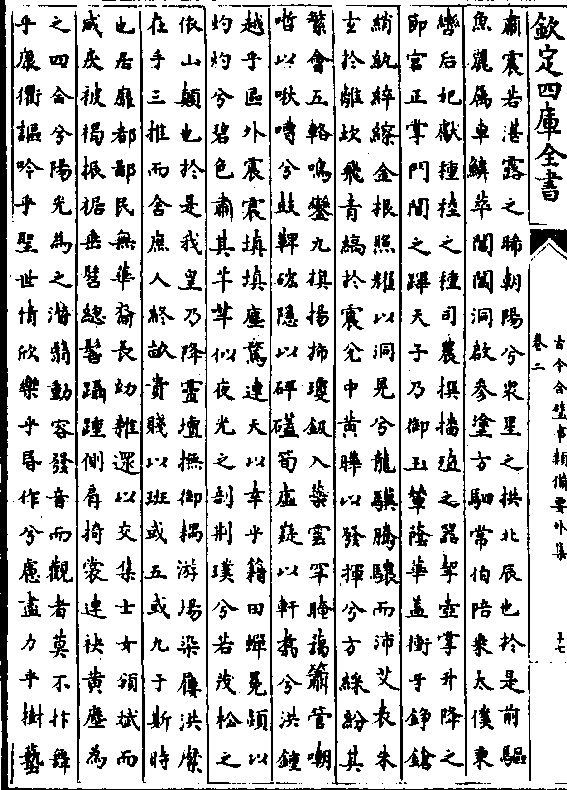 欽定四庫全書
古今合璧事類備要外集
卷二
十七
肅震若湛露之晞朝陽兮衆星之拱北辰也於是前驅
魚麗属車鱗萃閶闔洞啟參塗方駟常伯陪乗太僕秉
轡后妃獻穜稑之種司農撰播殖之器挈壺掌升降之
即宫正掌門閭之蹕天子乃御玉輦蔭華蓋衝牙錚鎗
綃紈綷縩金根照耀以洞晃兮龍驥騰驤而沛艾表朱
玄於離坎飛青縞於震兌中黄曄以發揮兮方綵紛其
繁會五輅鳴鑾九旗揚斾瓊鈒入蘂雲罕晻藹簫管嘲
哳以啾嘈兮鼓鞞硡隱以砰礚筍虡嶷以軒翥兮洪鍾
越乎區外震震填填塵驚連天以幸乎籍田蟬冕熲以
灼灼兮碧色肅其芊芊似夜光之剖荆璞兮若茂松之
依山顛也於是我皇乃降靈壇撫御耦游塲染屨洪縻
在手三推而舍庶人終畝貴賤以班或五或九于斯時
也居靡都鄙民無華裔長幼雜遝以交集士女頒斌而
咸戾被褐振裾垂髫總髻躡踵側肩掎裳連袂黄塵為
之四合兮陽光為之潜翳動容發音而觀者莫不抃舞
乎康衢謳吟乎聖世情欣樂乎昬作兮慮盡力乎樹藝